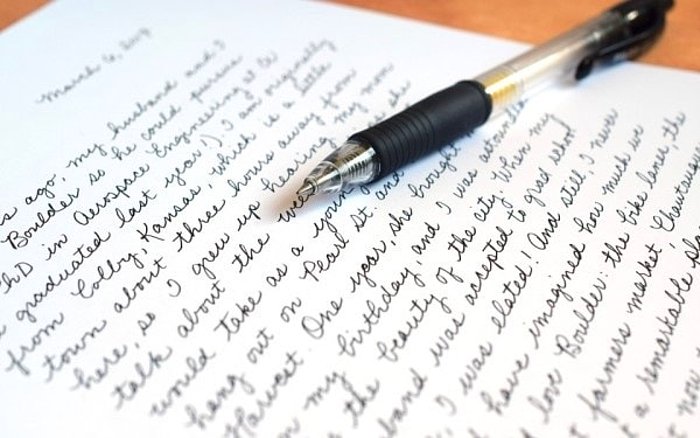 March 6,
s ago, my husband and I
Boulder so he could pursue
PhD in Aerospace Engineering at
graduated last year!) I am originally
from Colby, Kansas, which is a little
town about three hours away from
here, so I grew up hearing my mom
talk about the
would take as a young
hang out on Pearl St. and
Harvest. One year, she bought
on my birthday, and I was astounded
the beauty of the city. When my
band was accepted to grad school
, I was elated! And still, I never
have imagined how much we
love Boulder: the bike lanes, the
farmers market, Chautauqua
a remarkable